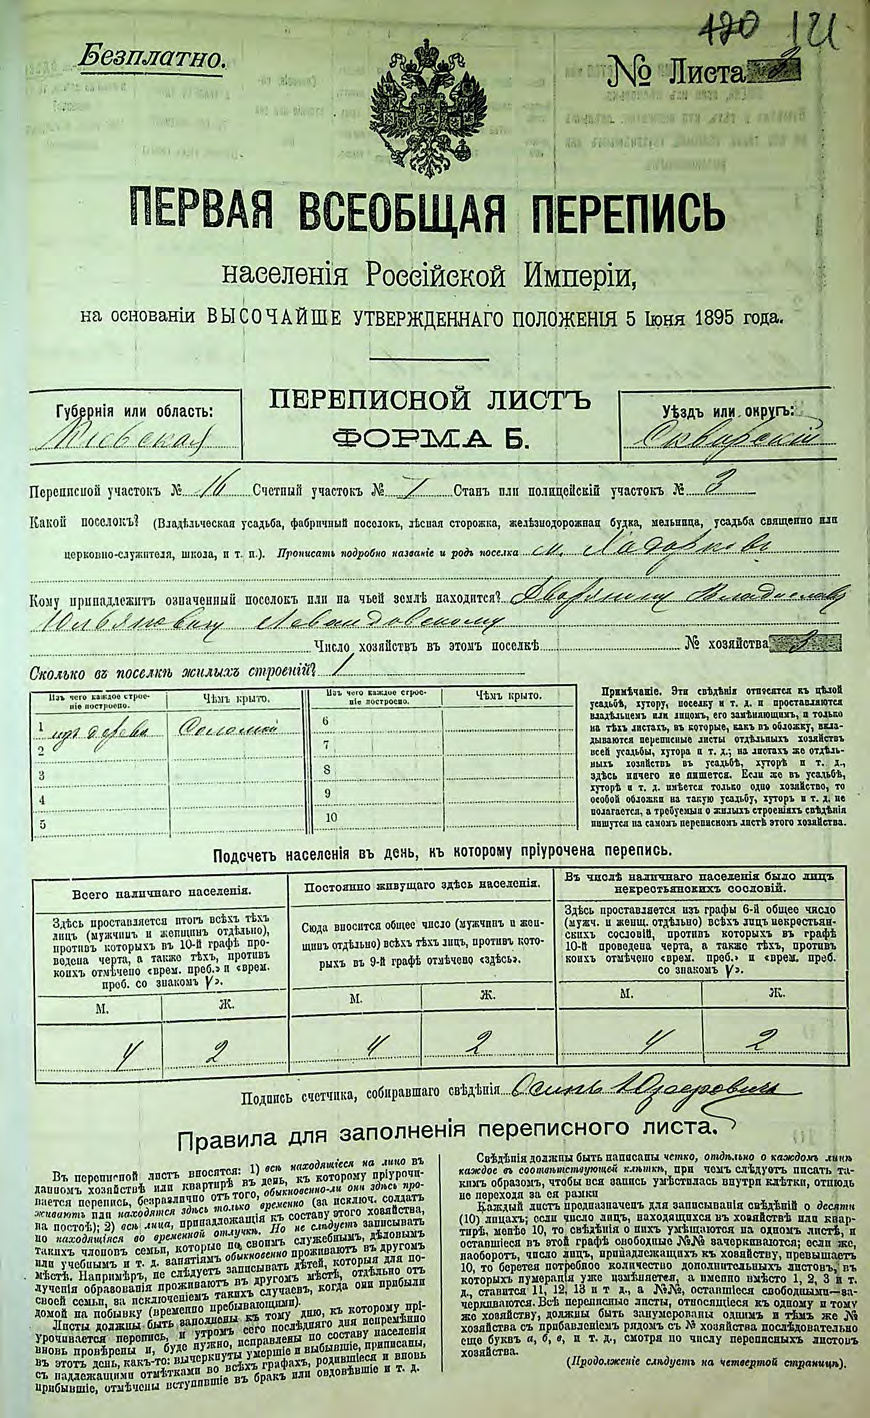 120 121
Безплатно.
№ Листа 3
ПЕРВАЯ ВСЕОБЩАЯ ПЕРЕПИСЬ
населенія Россійской Имперіи,
на основаніи ВЫСОЧАЙШЕ УТВЕРЖДЕННАГО ПОЛОЖЕНІЯ 5 Іюня 1895 года.
Губернія или область:
Кіевская
ПЕРЕПИСНОЙ ЛИСТЪ
ФОРМА Б.
Уѣздъ или округъ:
Сквирскій
Переписной участокъ № 16 Счетный участокъ № 1 Станъ или полицейскій участокъ № 3
Какой поселокъ? (Владѣльческая усадьба, фабричный поселокъ, лѣсная сторожка, желѣзнодорожная будка, мельница, усадьба священно или
церковно-служителя, школа, и т. п.). Прописать подробно названіе и родъ поселка м. Ходорковъ
Кому принадлежитъ означенный поселокъ или на чьей землѣ находится? Дворянину Владиславу
Юльяновичу Левандовскому
Число хозяйствъ въ этомъ поселкѣ № хозяйства 3
Сколько въ поселкѣ жилыхъ строеній? 1
Изъ чего каждое строе-
ніе построено.
Чѣмъ крыто.
Изъ чего каждое строе-
ніе построено.
Чѣмъ крыто.
1 изъ дерева Соломой 6
2 7
3 8
4 9
5 10
Примѣчаніе. Эти свѣдѣнія относятся къ цѣлой
усадьбѣ, хутору, поселку и т. д. и проставляются
владѣльцемъ или лицомъ, его замѣняющимъ, и только
на тѣхъ листахъ, въ которые, какъ въ обложку, вкла-
дываются переписные листы отдѣльныхъ хозяйствъ
всей усадьбы, хутора и т. д.; на листахъ же отдѣль-
ныхъ хозяйствъ въ усадьбѣ, хуторѣ и т. д.,
здѣсь ничего не пишется. Если же въ усадьбѣ,
хуторѣ и т. д. имѣется только одно хозяйство, то
особой обложки на такую усадьбу, хуторъ и т. д. не
полагается, а требуемыя о жилыхъ строеніяхъ свѣдѣнія
пишутся на самомъ переписномъ листѣ этого хозяйства.
Подсчетъ населенія въ день, къ которому пріурочена перепись.
Всего наличнаго населенія.
Здѣсь проставляется итогъ всѣхъ тѣхъ
лицъ (мужчинъ и женщинъ отдѣльно),
противъ которыхъ въ 10-й графѣ про-
ведена черта, а также тѣхъ, противъ
коихъ отмѣчено «врем. преб.» и «врем.
преб. со знакомъ V».
М. Ж.
4 2
Постоянно живущаго здѣсь населенія.
Сюда вносится общее число (мужчинъ и жен-
щинъ отдѣльно) всѣхъ тѣхъ лицъ, противъ кото-
рыхъ въ 9-й графѣ отмѣчено «здѣсь».
М. Ж.
4 2
Въ числѣ наличнаго населенія было лицъ
некрестьянскихъ сословій.
Здѣсь проставляется изъ графы 6-й общее число
(мужч. и женщ. отдѣльно) всѣхъ лицъ некрестьян-
скихъ сословій, противъ которыхъ въ графѣ
10-й проведена черта, а также тѣхъ, противъ
коихъ отмѣчено «врем. преб.» и «врем. преб.
со знакомъ V».
М. Ж.
4 2
Подпись счетчика, собиравшаго свѣдѣнія Осипъ
Правила для заполненія переписного листа.
Въ переписной листъ вносятся: 1) всѣ находящіеся на лицо въ
данномъ хозяйствѣ или квартирѣ въ день, къ которому пріурочи-
вается перепись, безразлично отъ того, обыкновенно-ли они здѣсь про-
живаютъ или находятся здѣсь только временно (за исключ. солдатъ
на постоѣ); 2) всѣ лица, принадлежащія къ составу этого хозяйства,
но находящіяся во временной отлучкѣ. Но не слѣдуетъ записывать
такихъ членовъ семьи, которые по своимъ служебнымъ, дѣловымъ
или учебнымъ и т. д. занятіямъ обыкновенно проживаютъ въ другомъ
мѣстѣ. Напримѣръ, не слѣдуетъ записывать дѣтей, которыя для по-
лученія образованія проживаютъ въ другомъ мѣстѣ, отдѣльно отъ
своей семьи, за исключеніемъ такихъ случаевъ, когда они прибыли
домой на побывку (временно пребывающими).
Листы должны быть заполнены къ тому дню, къ которому прі-
урочивается перепись, и утромъ сего послѣдняго дня непремѣнно
вновь провѣрены и, буде нужно, исправлены по составу населенія
въ этотъ день, какъ-то: вычеркнуты умершіе и выбывшіе, приписаны,
съ надлежащими отмѣтками во всѣхъ графахъ, родившіеся и вновь
прибывшіе, отмѣчены вступившіе въ бракъ или овдовѣвшіе и т. д.
Свѣдѣнія должны быть написаны четко, отдѣльно о каждомъ лицѣ
каждое въ соотвѣтствующей клѣткѣ, при чемъ слѣдуетъ писать та-
кимъ образомъ, чтобы вся запись умѣстилась внутри клѣтки, отнюдь
не переходя за ея рамки
Каждый листъ предназначенъ для записыванія свѣдѣній о десяти
(10) лицахъ; если число лицъ, находящихся въ хозяйствѣ или квар-
тирѣ, менѣе 10, то свѣдѣнія о нихъ умѣщаются на одномъ листѣ, и
оставшіеся въ этой графѣ свободные №№ зачеркиваются; если же,
наоборотъ, число лицъ, принадлежащихъ къ хозяйству, превышаетъ
10, то берется потребное количество дополнительныхъ листовъ, въ
которыхъ нумерація уже измѣняется, а именно вмѣсто 1, 2, 3 и т.
д., ставится 11, 12, 13 и т. д., а №№, оставшіеся свободными—за-
черкиваются. Всѣ переписные листы, относящіеся къ одному и тому
же хозяйству, должны быть занумерованы однимъ и тѣмъ же №
хозяйства съ прибавленіемъ рядомъ съ № хозяйства послѣдовательно
еще буквъ а, б, в, и т. д., смотря по числу переписныхъ листовъ
хозяйства.
(Продолженіе слѣдуетъ на четвертой страницѣ).